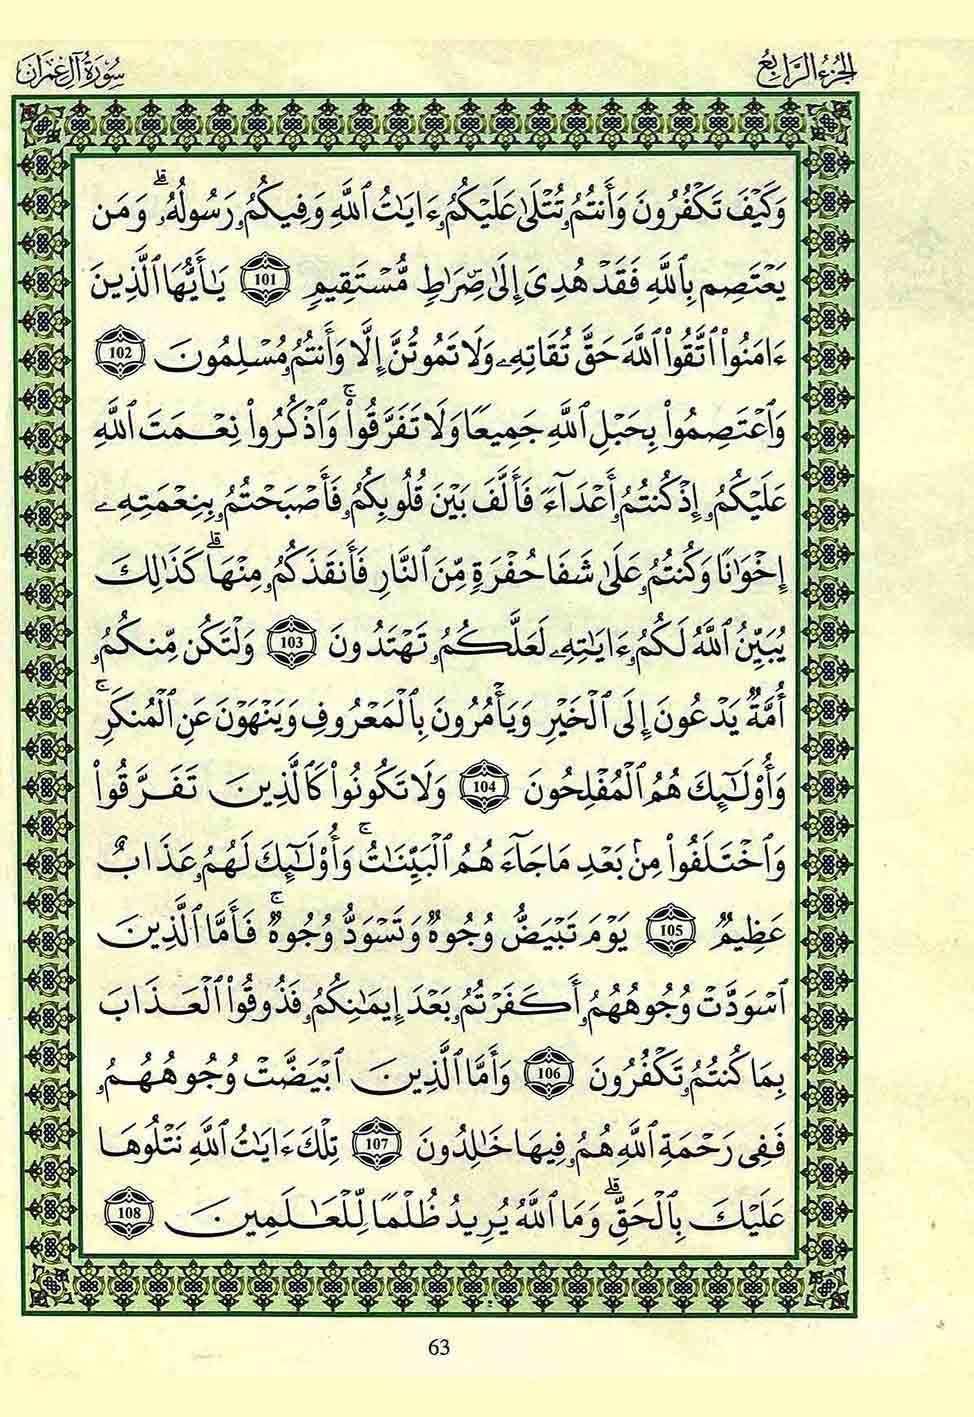 الجزء الرابع
سورة آل عمران
وَكَيْفَ تَكْفُرُونَ وَأَنتُمُۥ تُتْلَىٰ عَلَيْكُمُۥٓ ءَايَٰتُ ٱللَّهِ وَفِيكُمُۥ رَسُولُهُۥ ۗ وَمَن
يَعْتَصِم بِٱللَّهِ فَقَدْ هُدِىَ إِلَىٰ صِرَاطٍ مُّسْتَقِيمٍ 101 يَٰأَيُّهَا ٱلَّذِينَ
ءَامَنُوا۟ ٱتَّقُوا۟ ٱللَّهَ حَقَّ تُقَاتِهِۦ وَلَا تَمُوتُنَّ إِلَّا وَأَنتُمُۥ مُسْلِمُونَ 102
وَٱعْتَصِمُوا۟ بِحَبْلِ ٱللَّهِ جَمِيعًا وَلَا تَفَرَّقُوا۟ ۚ وَٱذْكُرُوا۟ نِعْمَتَ ٱللَّهِ
عَلَيْكُمُۥ إِذْ كُنتُمُۥ أَعْدَآءً فَأَلَّفَ بَيْنَ قُلُوبِكُمُۥ فَأَصْبَحْتُمُۥ بِنِعْمَتِهِۦ
إِخْوَٰنًا وَكُنتُمُۥ عَلَىٰ شَفَا حُفْرَةٍ مِّنَ ٱلنَّارِ فَأَنقَذَكُمُۥ مِنْهَا ۗ كَذَٰلِكَ
يُبَيِّنُ ٱللَّهُ لَكُمُۥ ءَايَٰتِهِۦ لَعَلَّكُمُۥ تَهْتَدُونَ 103 وَلْتَكُن مِّنكُمُۥ
أُمَّةٌ يَدْعُونَ إِلَى ٱلْخَيْرِ وَيَأْمُرُونَ بِٱلْمَعْرُوفِ وَيَنْهَوْنَ عَنِ ٱلْمُنكَرِ ۚ
وَأُو۟لَٰٓئِكَ هُمُ ٱلْمُفْلِحُونَ 104 وَلَا تَكُونُوا۟ كَٱلَّذِينَ تَفَرَّقُوا۟
وَٱخْتَلَفُوا۟ مِنۢ بَعْدِ مَا جَآءَهُمُ ٱلْبَيِّنَٰتُ ۚ وَأُو۟لَٰٓئِكَ لَهُمُۥ عَذَابٌ
عَظِيمٌ 105 يَوْمَ تَبْيَضُّ وُجُوهٌ وَتَسْوَدُّ وُجُوهٌ ۚ فَأَمَّا ٱلَّذِينَ
ٱسْوَدَّتْ وُجُوهُهُمُۥ أَكَفَرْتُمُۥ بَعْدَ إِيمَٰنِكُمُۥ فَذُوقُوا۟ ٱلْعَذَابَ
بِمَا كُنتُمُۥ تَكْفُرُونَ 106 وَأَمَّا ٱلَّذِينَ ٱبْيَضَّتْ وُجُوهُهُمُۥ
فَفِى رَحْمَةِ ٱللَّهِ هُمُۥ فِيهَا خَٰلِدُونَ 107 تِلْكَ ءَايَٰتُ ٱللَّهِ نَتْلُوهَا
عَلَيْكَ بِٱلْحَقِّ ۗ وَمَا ٱللَّهُ يُرِيدُ ظُلْمًا لِّلْعَٰلَمِينَ 108
63